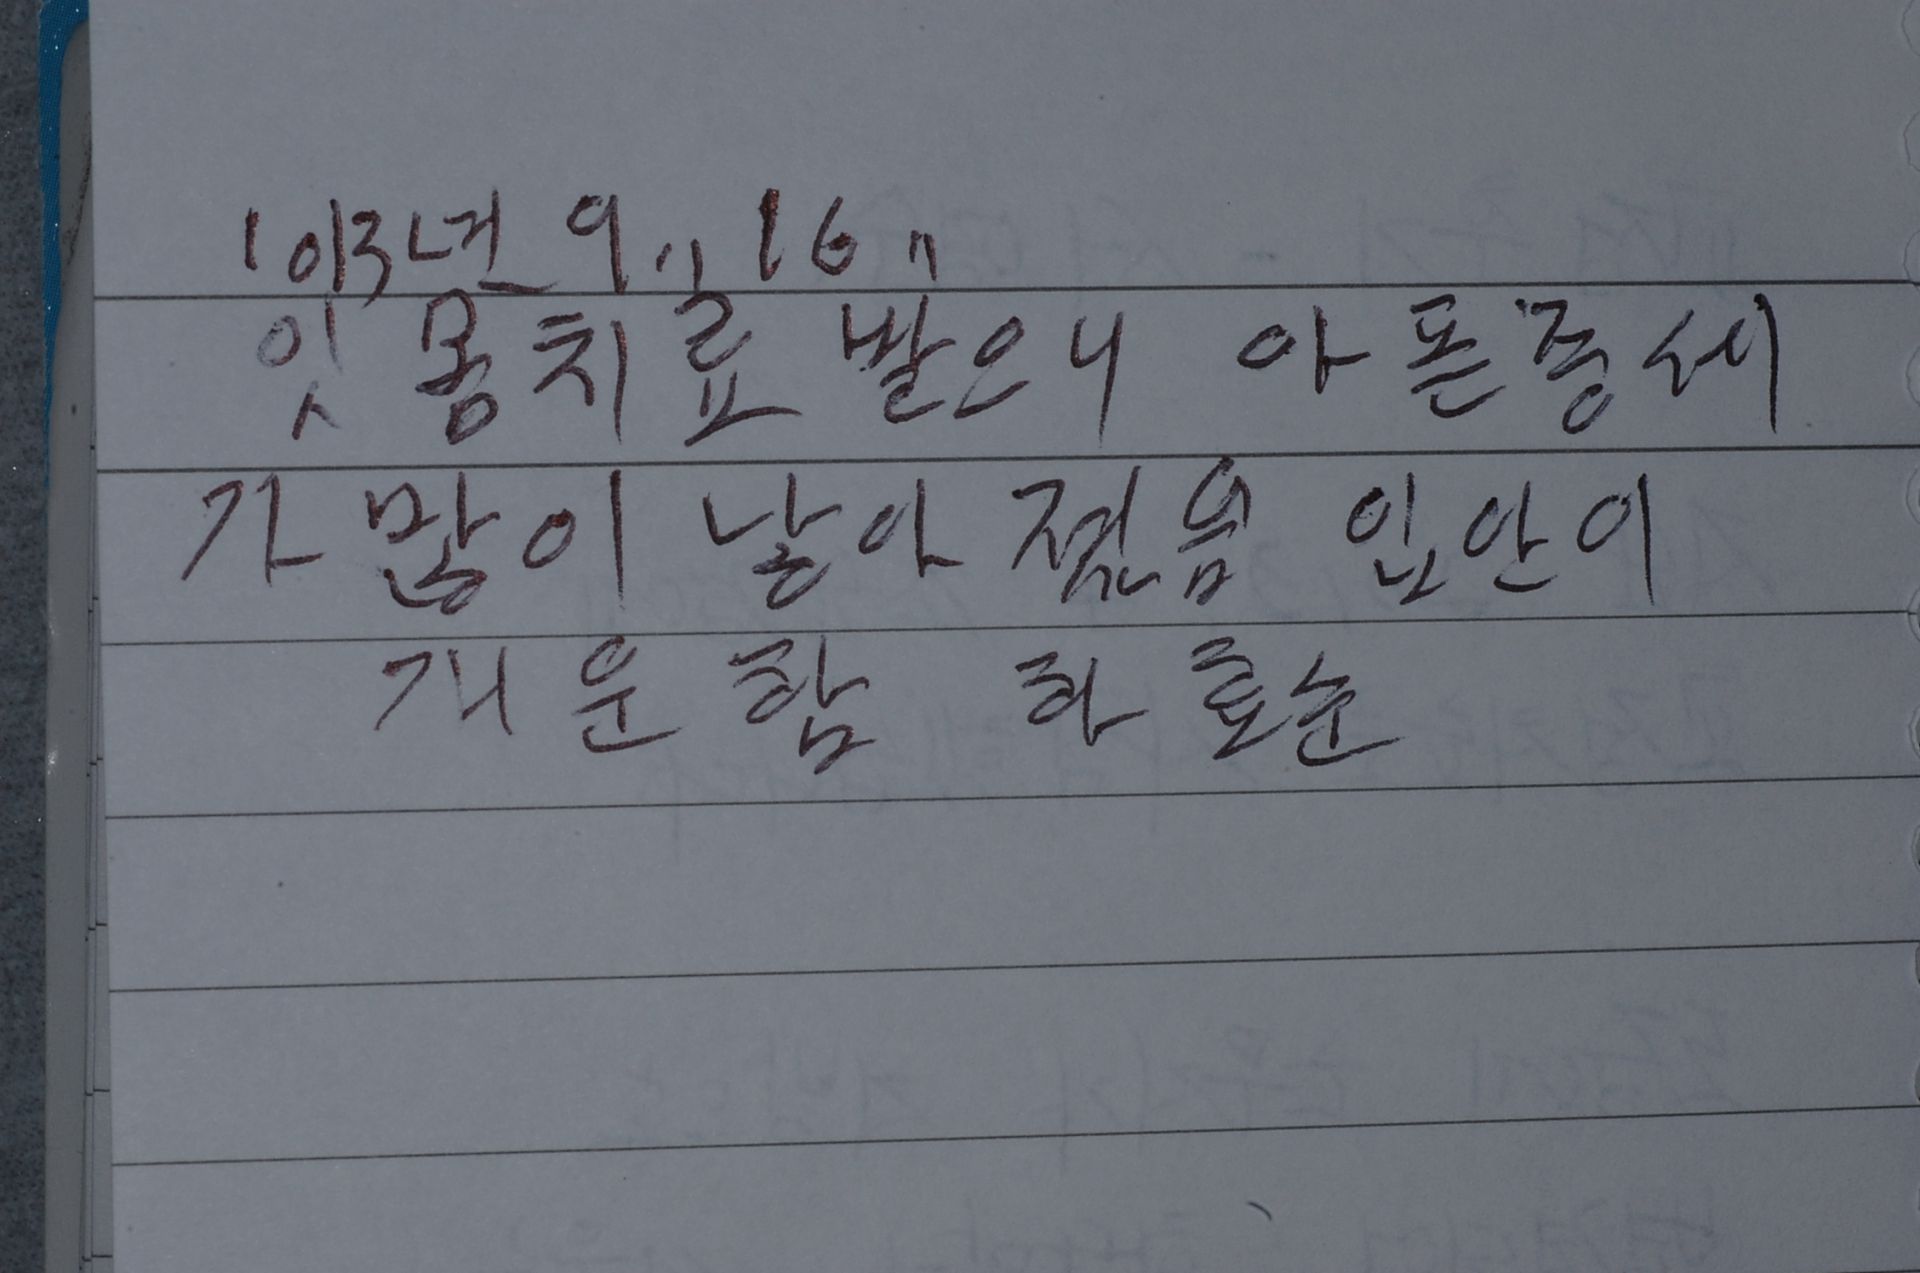 '013년 9" 16"
잇몸치료 발으니 아폰증세
가 많이 낳아 젔음 입안이
개운함 하효순